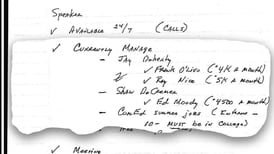 Speaker
✓ Available 24/7 (Calls)
✓ Currently Manage
- Jay Doherty
✓ Frank Olivo ($4K a month)
✓ Ray Nice ($5K a month)
- Shaw DeCremer
✓ Ed Moody ($4500 a month)
- ComEd summer jobs (Interns -
10 - MUST be in College)
✓ Meeting